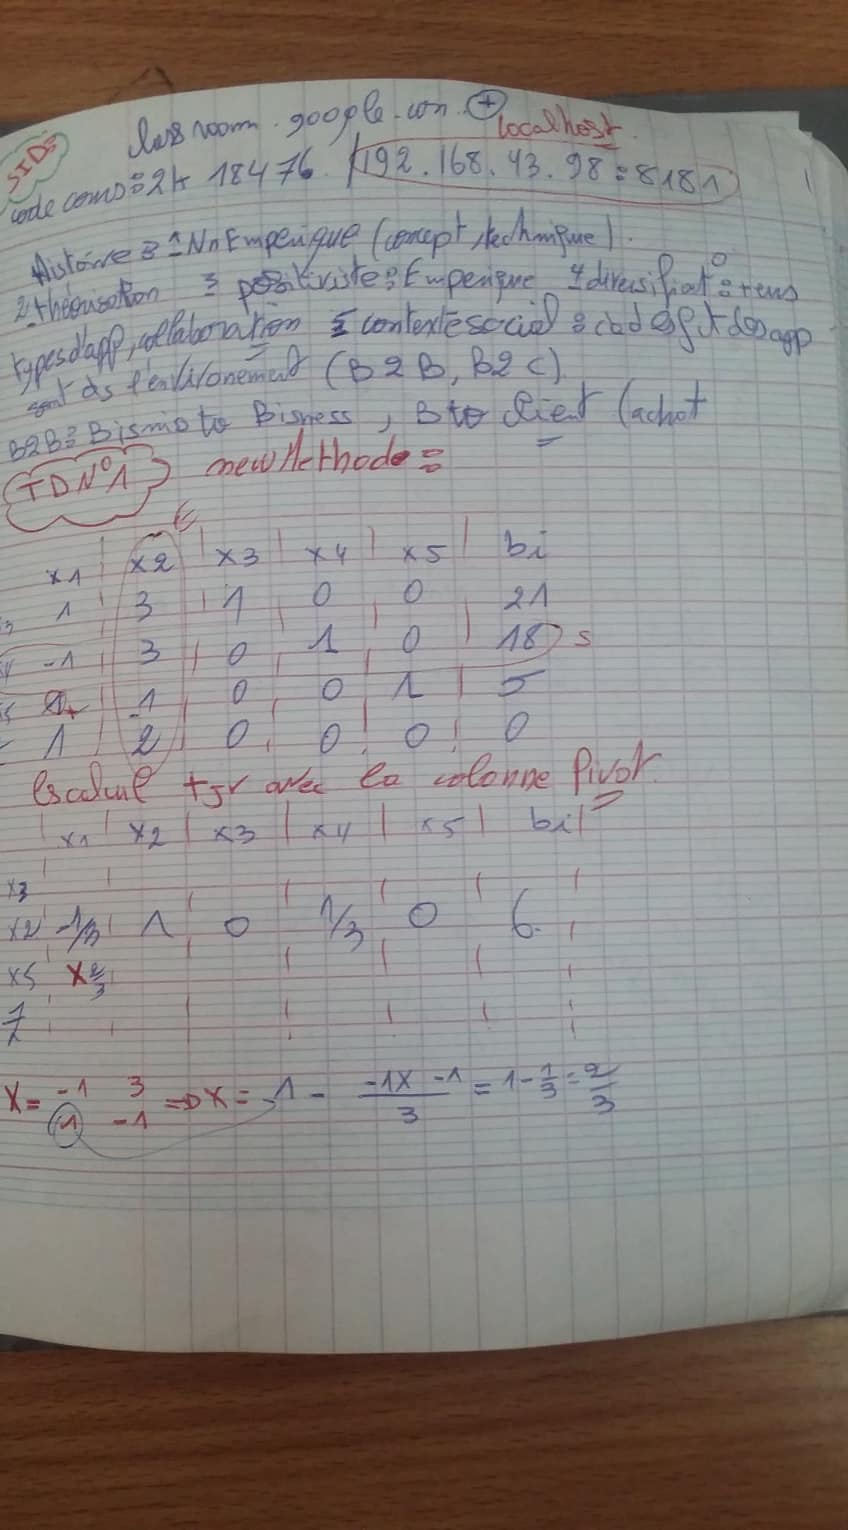 SIDS
classroom.google.com. +
localhost.
code coms: 2k 18476. 192.168.43.98:8181
1
Histoire : 1 Nn Emperique (concept, technique).
2 théorisation 3 positiviste: Emperique 4 diversificat°: +eurs
types d'app, collaboration 5 contexte social : cad app
sont ds l'environement (B2B, B2C).
B2B: Bisnis to Bisness, B to client (achat
TDN°1 new Methode :
x1 x2 x3 x4 x5 bi
1 3 1 0 0 21
-1 3 0 1 0 18 s
-1 0 0 1 5
1 2 0 0 0 0
calcul tjr avec la colonne Pivot.
x1 x2 x3 x4 x5 bi
x3
x2 -1/3 1 0 1/3 0 6.
x5 x 2/3
Z
X = -1 3 => X = 1 - -1x -1 / 3 = 1 - 1/3 = 2/3
1 -1